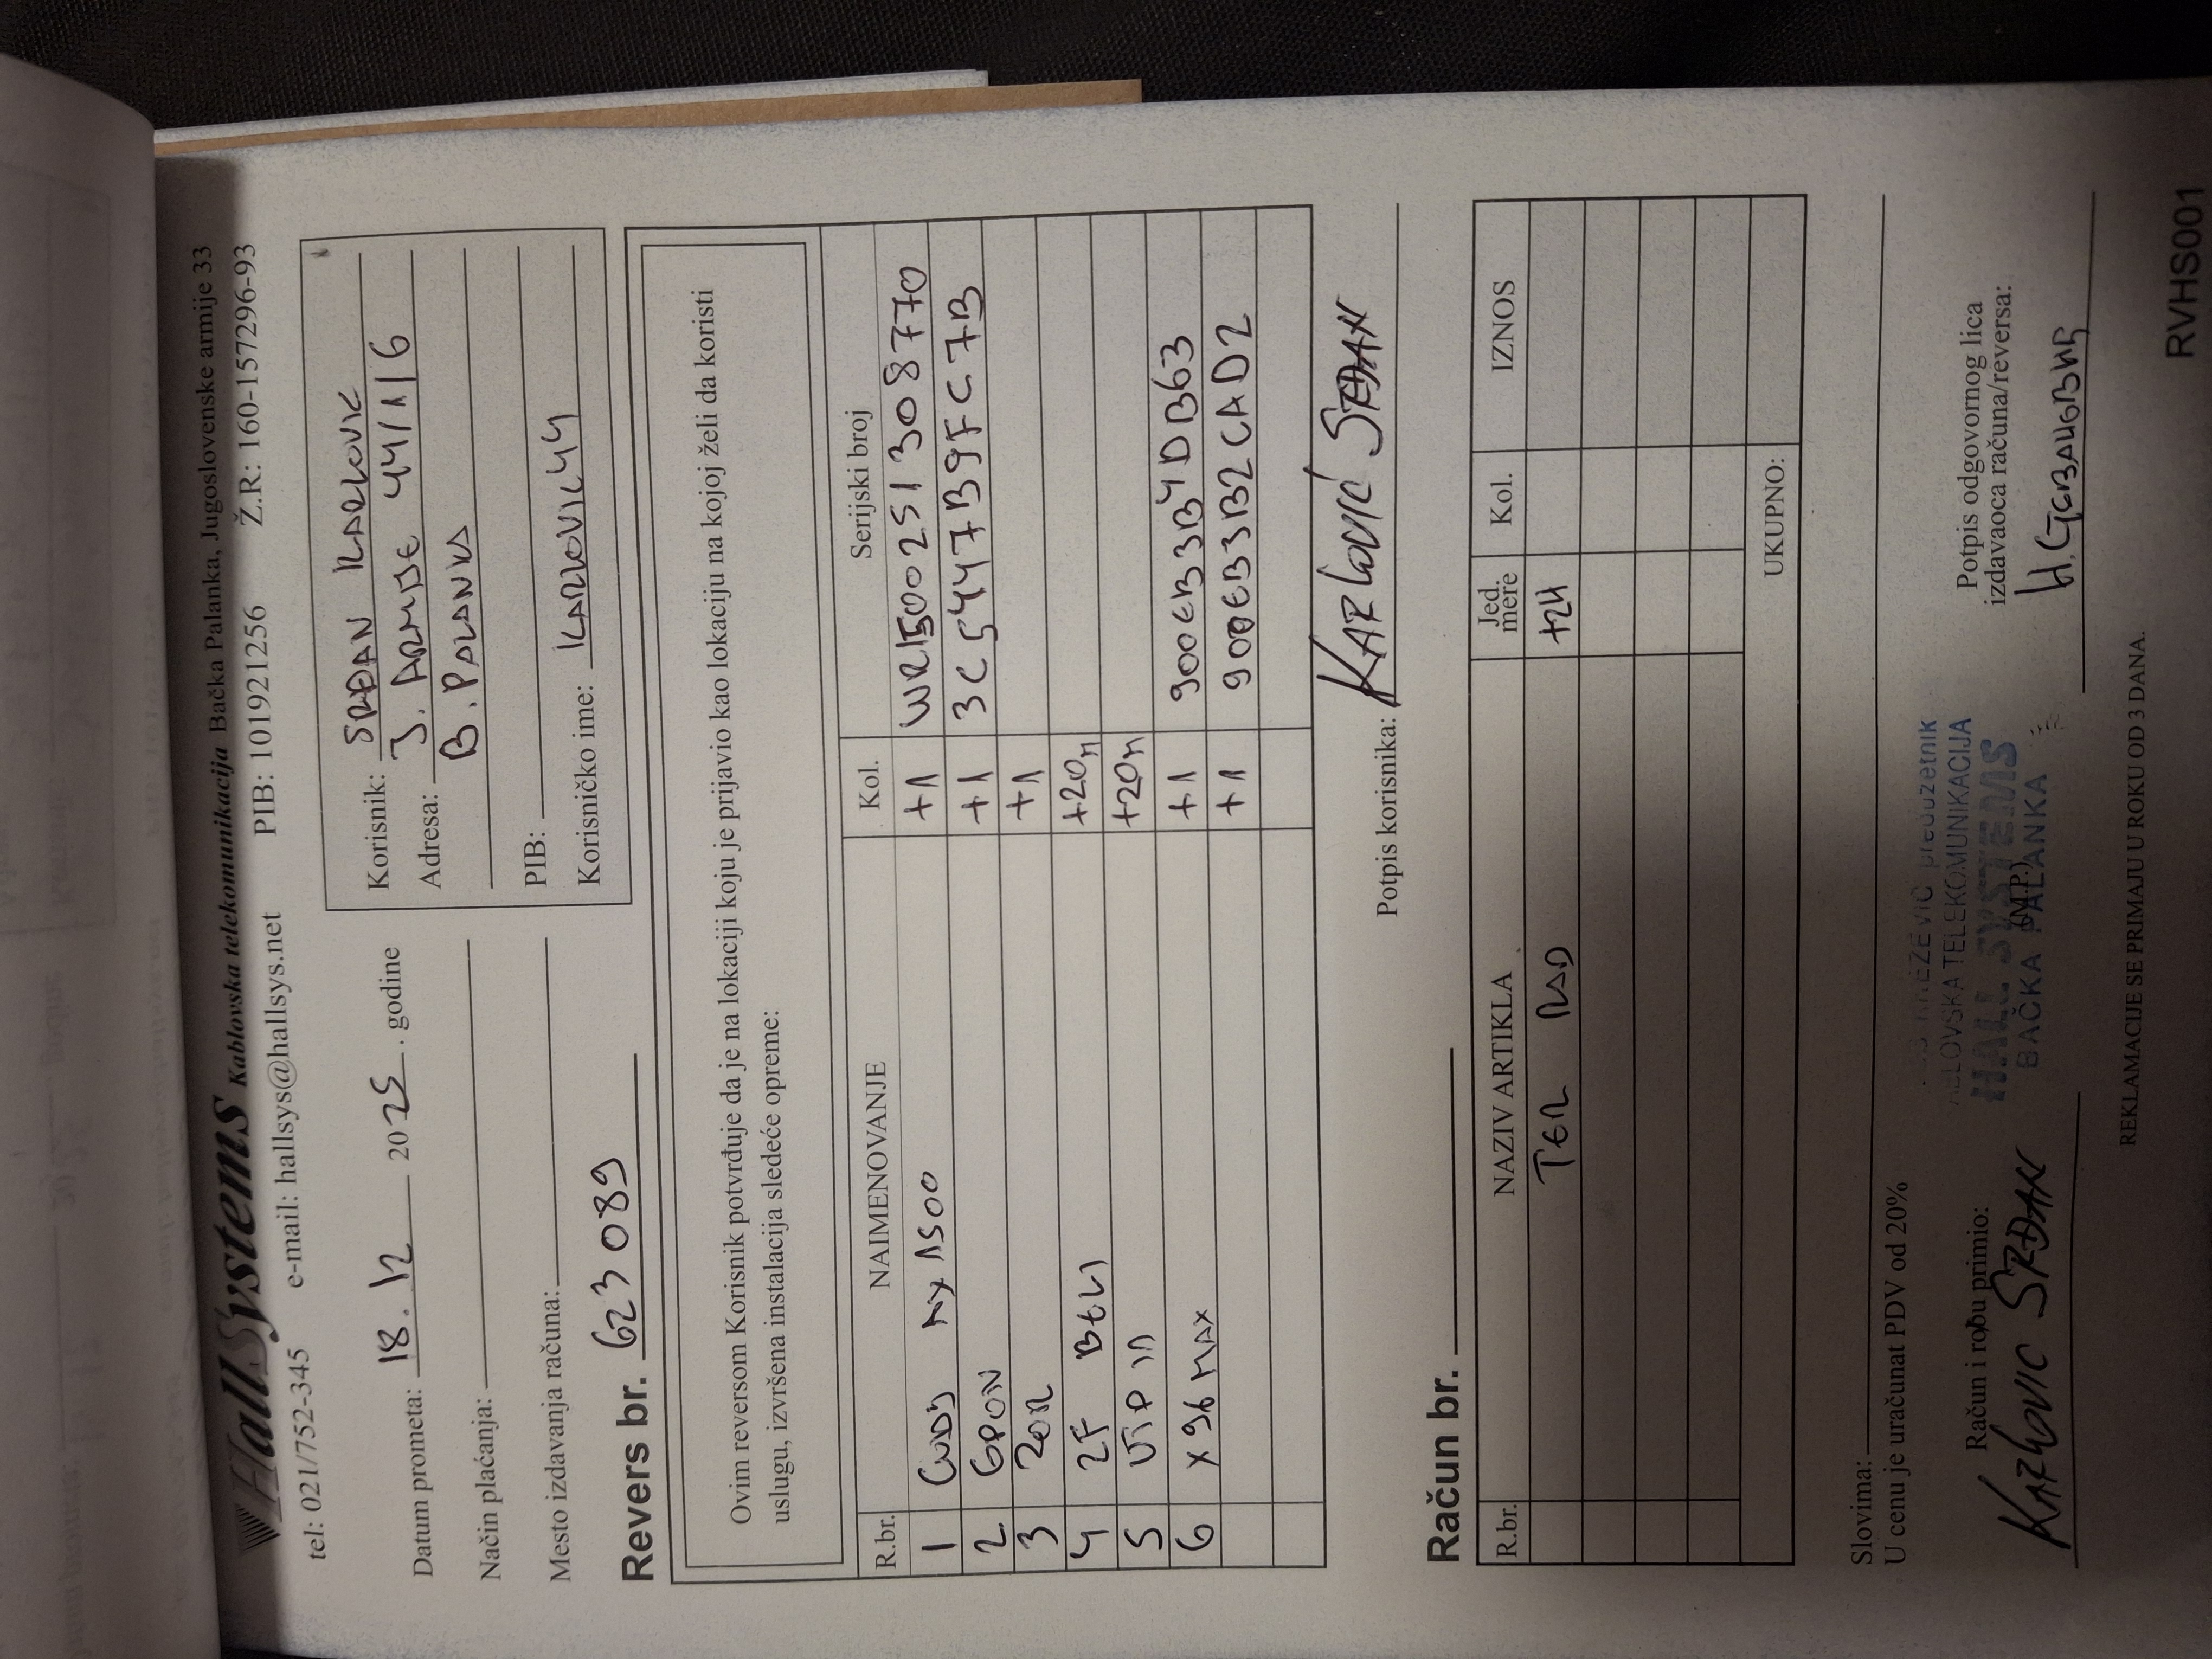 HallSystems Kablovska telekomunikacija Bačka Palanka, Jugoslovenske armije 33
tel: 021/752-345 e-mail: hallsys@hallsys.net PIB: 101921256 Ž.R: 160-157296-93
Datum prometa: 18. 12 2025. godine
Način plaćanja:
Mesto izdavanja računa:
Korisnik: SRĐAN KARLOVIC
Adresa: J. ARMIJE 44/116
B. PALANKA
PIB:
Korisničko ime: KARLOVIC44
Revers br. 623089
Ovim reversom Korisnik potvrđuje da je na lokaciji koju je prijavio kao lokaciju na kojoj želi da koristi
uslugu, izvršena instalacija sledeće opreme:
R.br. NAIMENOVANJE Kol. Serijski broj
1 CUDY +1 WR1500251308770
2 GPON +1 3C5447B9FC7B
3 +1
4 2F BELI +20m
5 UTP +20m
6 X96 MAX +1 900EB3B4DB63
+1 900EB3B2CAD2
Potpis korisnika: KARLOVIĆ SRĐAN
Račun br.
R.br. NAZIV ARTIKLA Jed. mere Kol. IZNOS
TER RAD +2H
UKUPNO:
Slovima:
U cenu je uračunat PDV od 20%
Račun i robu primio:
KARLOVIC SRĐAN
KNEŽEVIĆ preduzetnik
KABLOVSKA TELEKOMUNIKACIJA
HALL SYSTEMS
(M.P.)
BAČKA PALANKA
Potpis odgovornog lica
izdavaoca računa/reversa:
REKLAMACIJE SE PRIMAJU U ROKU OD 3 DANA.
RVHS001